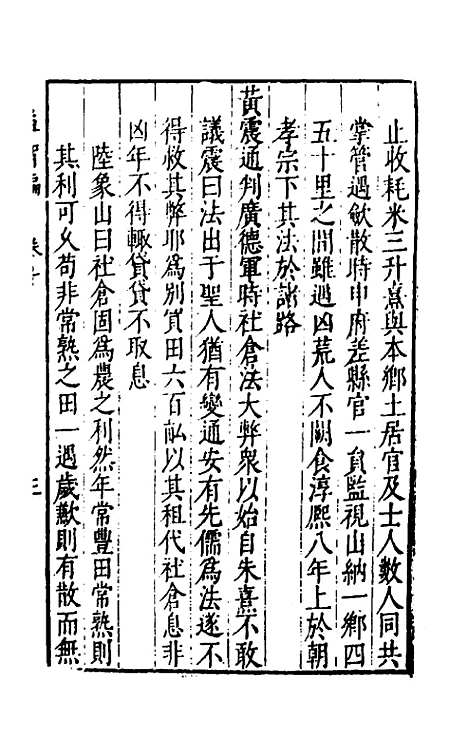 止收耗米三升熹與本鄉土居官及士人數人同共
掌管遇斂散時申府差縣官一負監視出納一鄉四
五十里之間雖遇凶荒人不闕食淳熙八年上於朝
孝宗下其法於諸路
黃震通判廣德軍時社倉法大弊衆以始自朱熹不敢
議震曰法出于聖人猶有變通安有先儒爲法遂不
得救其弊耶爲別買田六百畝以其租代社倉息非
凶年不得輒貸貸不取息
陸象山曰社倉固爲農之利然年常豐田常熟則
其利可久苟非常熟之田一遇歲歉則有散而無